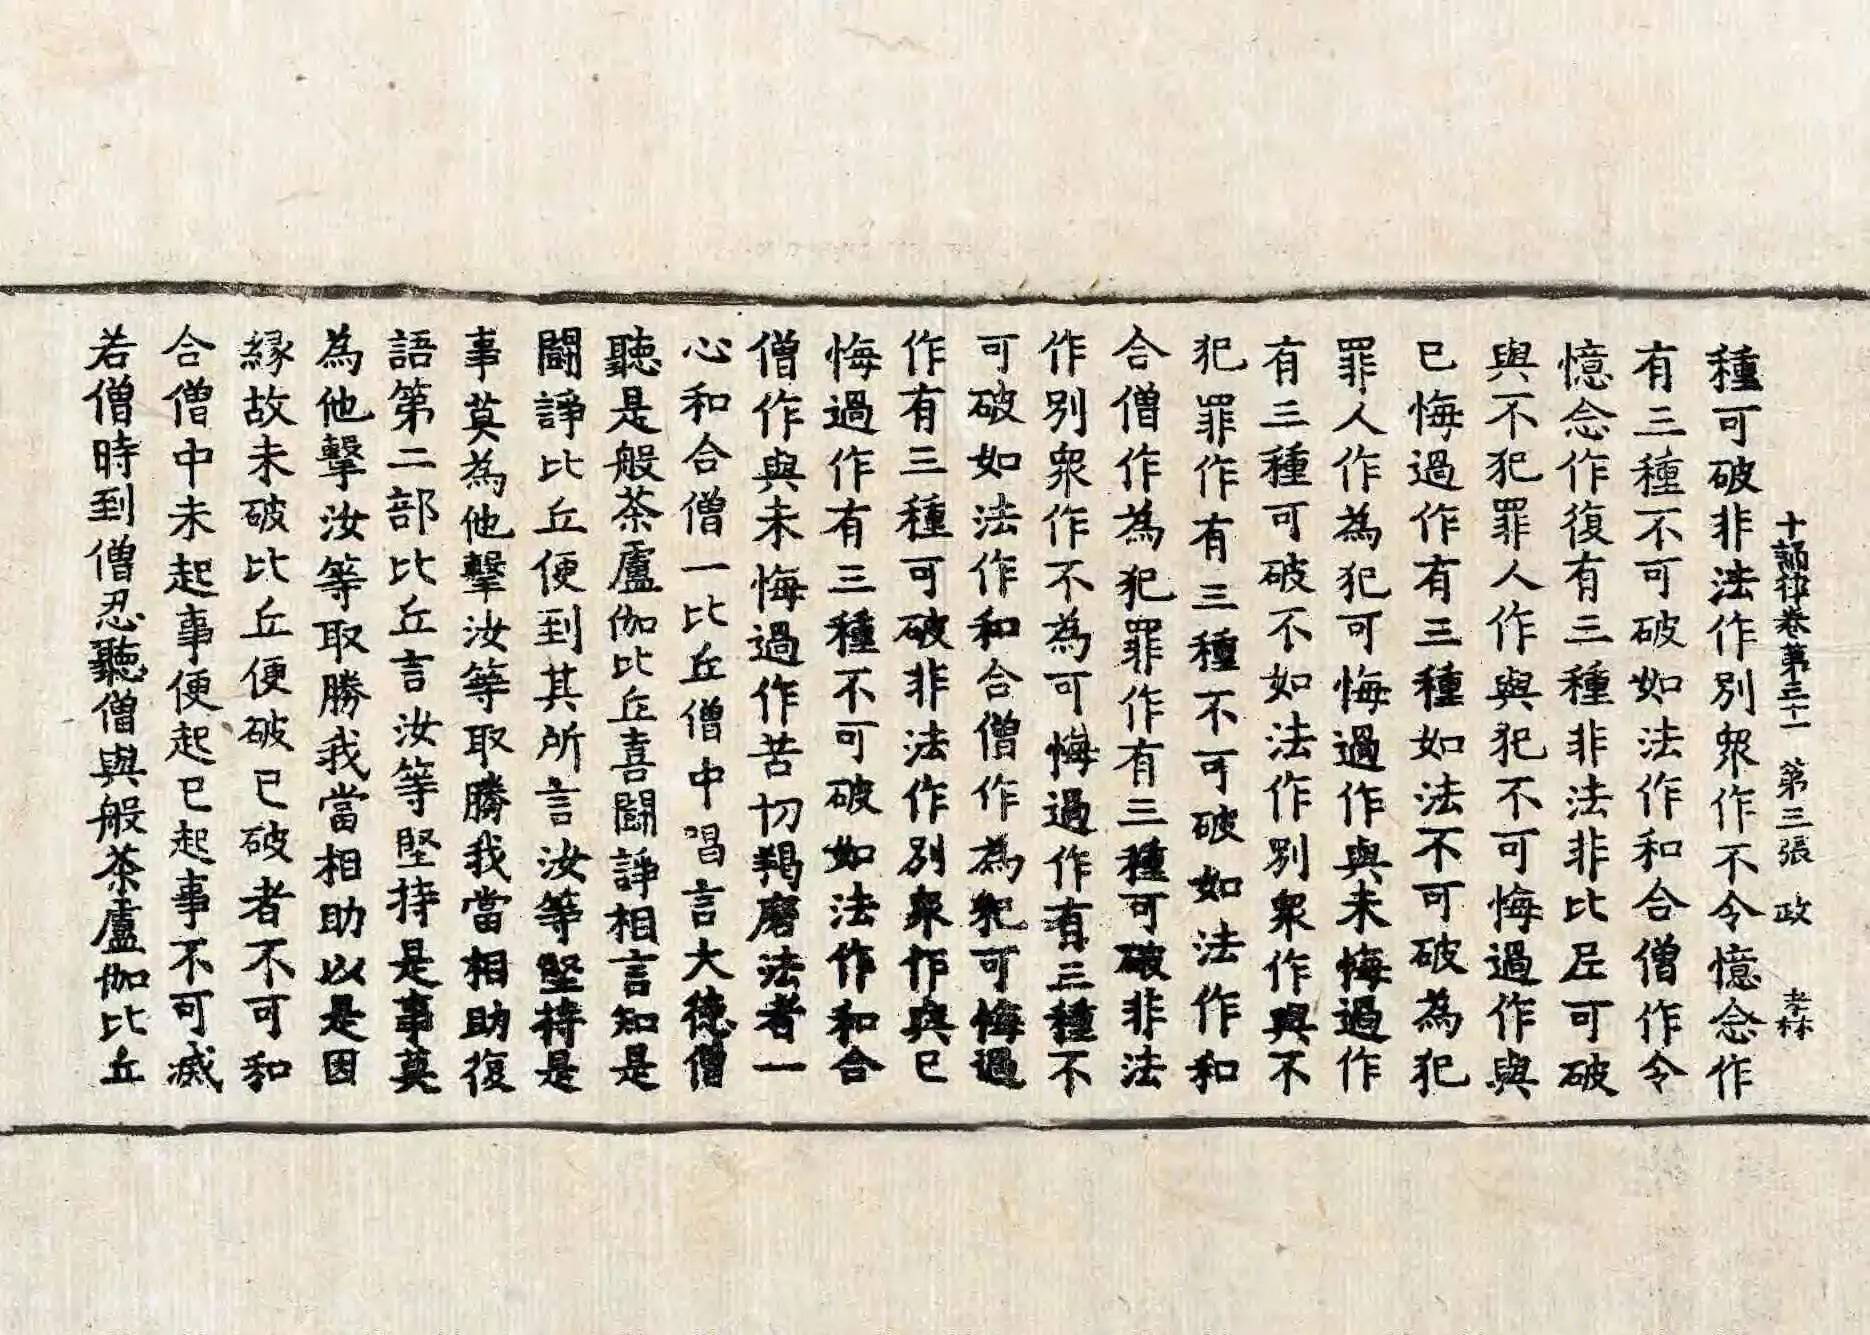 十誦律卷第三十一 第三張 政 孝林
種可破非法作別衆作不令憶念作
有三種不可破如法作和合僧作令
憶念作復有三種非法非比尼可破
與不犯罪人作與犯不可悔過作與
已悔過作有三種如法不可破為犯
罪人作為犯可悔過作與未悔過作
有三種可破不如法作別衆作與不
犯罪作有三種不可破如法作和
合僧作為犯罪作有三種可破非法
作別衆作不為可悔過作有三種不
可破如法作和合僧作為犯可悔過
作有三種可破非法作別衆作與已
悔過作有三種不可破如法作和合
僧作與未悔過作苦切羯磨法者一
心和合僧一比丘僧中唱言大德僧
聽是般茶盧伽比丘喜鬪諍相言知是
鬪諍比丘便到其所言汝等堅持是
事莫為他擊汝等取勝我當相助復
語第二部比丘言汝等堅持是事莫
為他擊汝等取勝我當相助以是因
緣故未破比丘便破已破者不可和
合僧中未起事便起已起事不可滅
若僧時到僧忍聽僧與般茶盧伽比丘